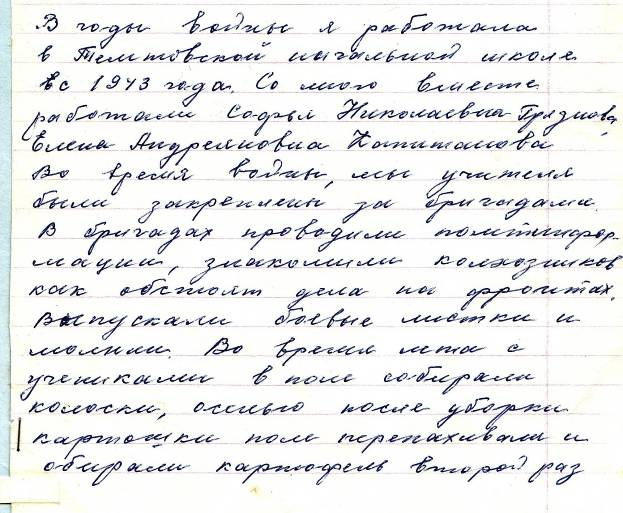 В годы войны я работала
в Темтовской начальной школе
с 1943 года. Со мою вместе
работали Софья Николаевна Грязнова,
Елена Андреяновна Капитанова
Во время войны, мы учителя
были закреплены за бригадами.
В бригадах проводили политинфор-
мации, знакомили колхозников
как обстоят дела на фронтах.
Выпускали боевые листки и
молнии. Во время лета с
учениками в поле собирали
колоски, осенью после уборки
картошки поле перепахивали и
обирали картофель второй раз